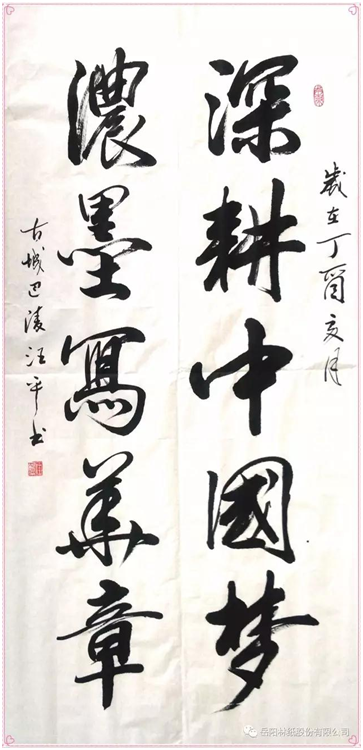 歲在丁酉亥月
深耕中國梦
濃墨寫華章
古城巴陵汪平书
岳阳林纸股份有限公司